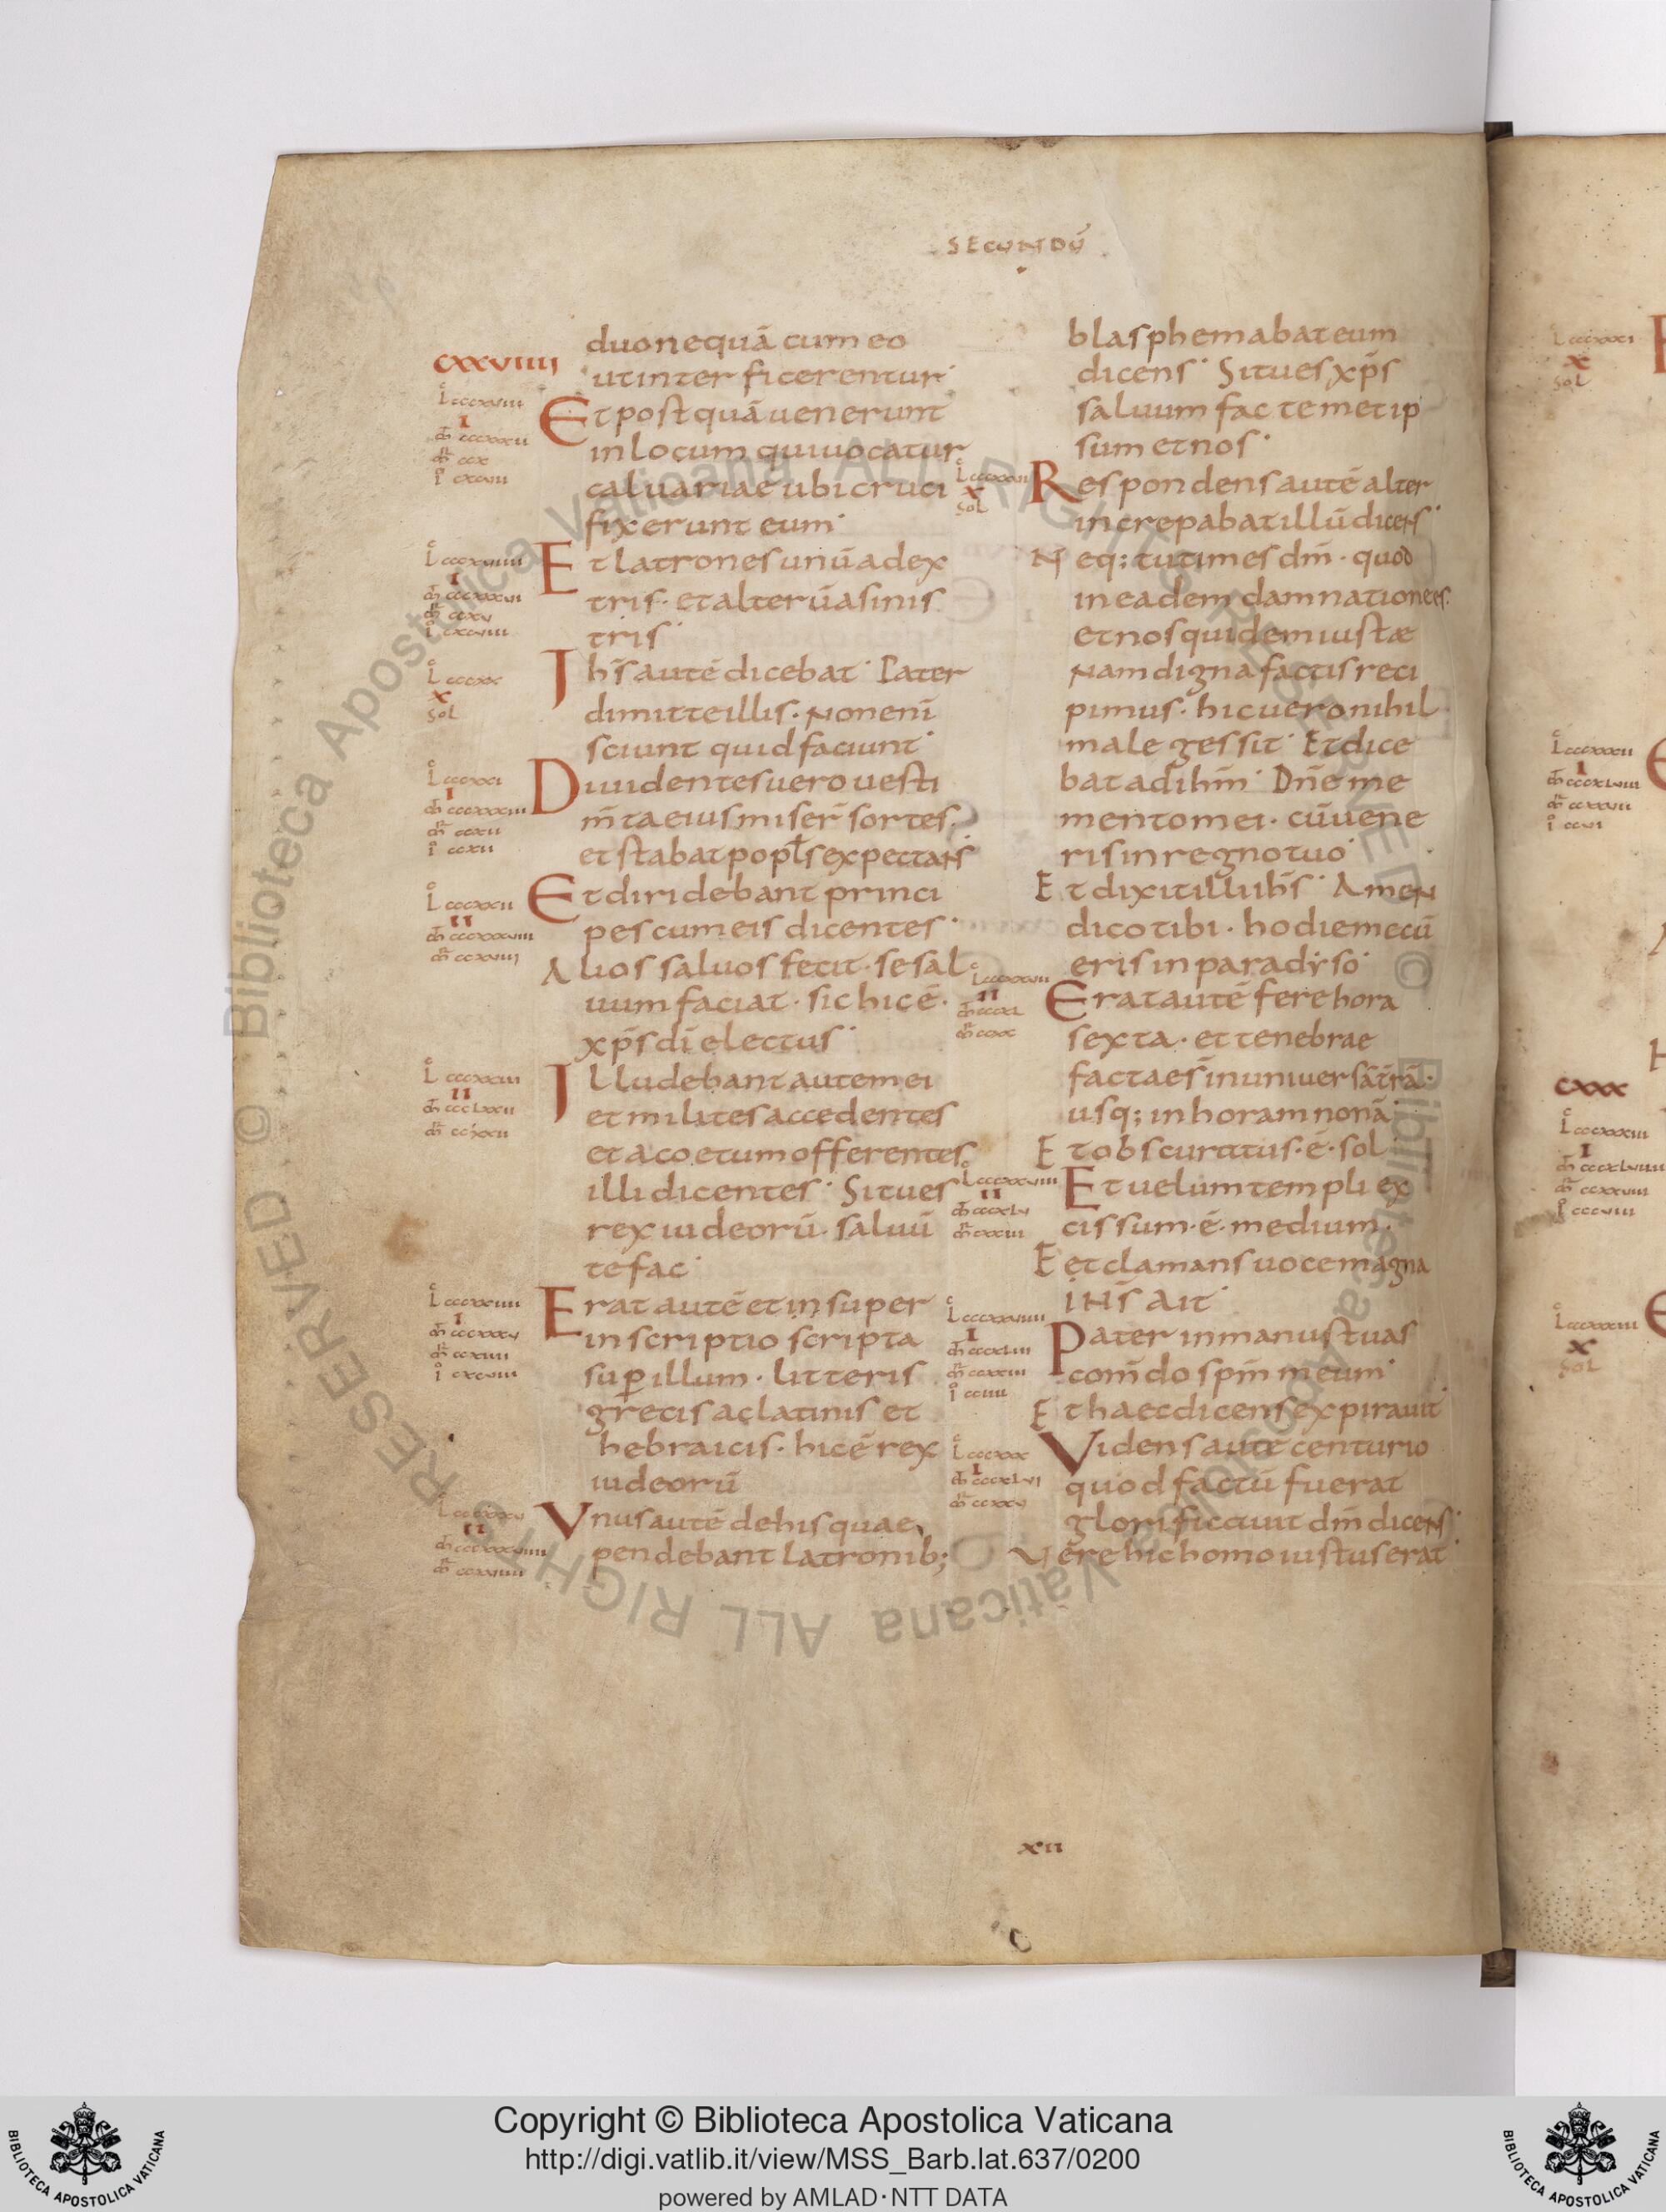 SECUNDU̅
duo nequā cum eo
ut interficerentur
CXXVIIII
Et postquā uenerunt
in locum qui uocatur
caluariae ubi cruci
fixerunt eum
Et latrones unū a dex
tris · et alterū a sinis
tris
Ihs̄ autē dicebat · Pater
dimitte illis · Non enī
sciunt quid faciunt
Diuidentes uero uesti
m̄ta eius miser̄ sortes
et stabat popl̄s expectans
Et diridebant princi
pes cum eis dicentes
Alios saluos fecit · se sal
uum faciat · si hic ē ·
xp̄s dī electus
Illudebant autem ei
et milites accedentes
et acoetum offerentes
illi dicentes · Si tu es
rex iudeorū · saluū
te fac
Erat autē et in super
inscriptio scripta
sup̱ illum · litteris
grecis ac latinis et
hebraicis · hic ē rex
iudeorū
Vnus autē de his quae
pendebant latronib;
blasphemabat eum
dicens · Si tu es xp̄s
saluum fac temet ip
sum et nos
Respondens autē alter
increpabat illū dicens
Neq; tu times dm̄ · quod
in eadem damnatione es
et nos quidem iustæ
Nam digna factis reci
pimus · hic uero nihil
male gessit · Et dice
bat ad ihm̄ · Dn̄e me
mento mei · cū uene
ris in regno tuo
Et dixit illi ihs̄ · Amen
dico tibi · hodie mecū
eris in paradyso
Erat autē fere hora
sexta · et tenebrae
facta es̄ in uniuersā tr̄ā ·
usq; in horam nonā
Et obscuratus · ē · sol
Et uelum templi ex
cissum · ē · medium ·
E et clamans uoce magna
IHS̄ AIT
Pater in manus tuas
com̄do spm̄ meum
Et haec dicens expirauit
Videns autē centurio
quod factū fuerat
glorificauit dm̄ dicens
Vere hic homo iustus erat
XII
CXXX
Copyright © Biblioteca Apostolica Vaticana
http://digi.vatlib.it/view/MSS_Barb.lat.637/0200
powered by AMLAD·NTT DATA
BIBLIOTECA APOSTOLICA VATICANA
BIBLIOTECA APOSTOLICA VATICANA